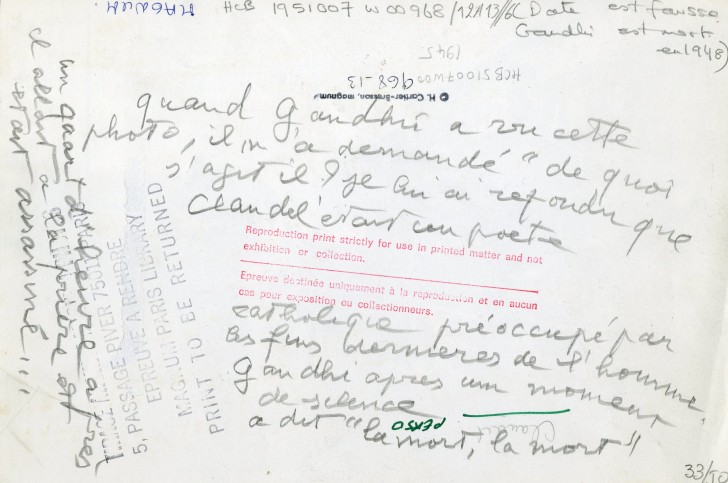 HCB 1951007 W 00968/12A13//6C (Date est fausse
Gandhi est mort
en 1948)
1945
HCB51007W00
968-13
© H. Cartier-Bresson, magnum
quand Gandhi a vu cette
photo, il m'a demandé "de quoi
s'agit il? je lui ai repondu que
Claudel était un poète
Reproduction print strictly for use in printed matter and not
exhibition or collection.
Epreuve destinée uniquement à la reproduction et en aucun
cas pour exposition ou collectionneurs.
catholique préoccupé par
les fins dernieres de l'homme.
Gandhi apres un moment
de silence
a dit "la mort, la mort"
PERSO
Claudel
un quart d'heure apres
il allait a la prière et
etait assassiné...
5, PASSAGE PIVER 750
EPREUVE A RENDRE
MAGNUM PARIS LIBRARY
PRINT TO BE RETURNED